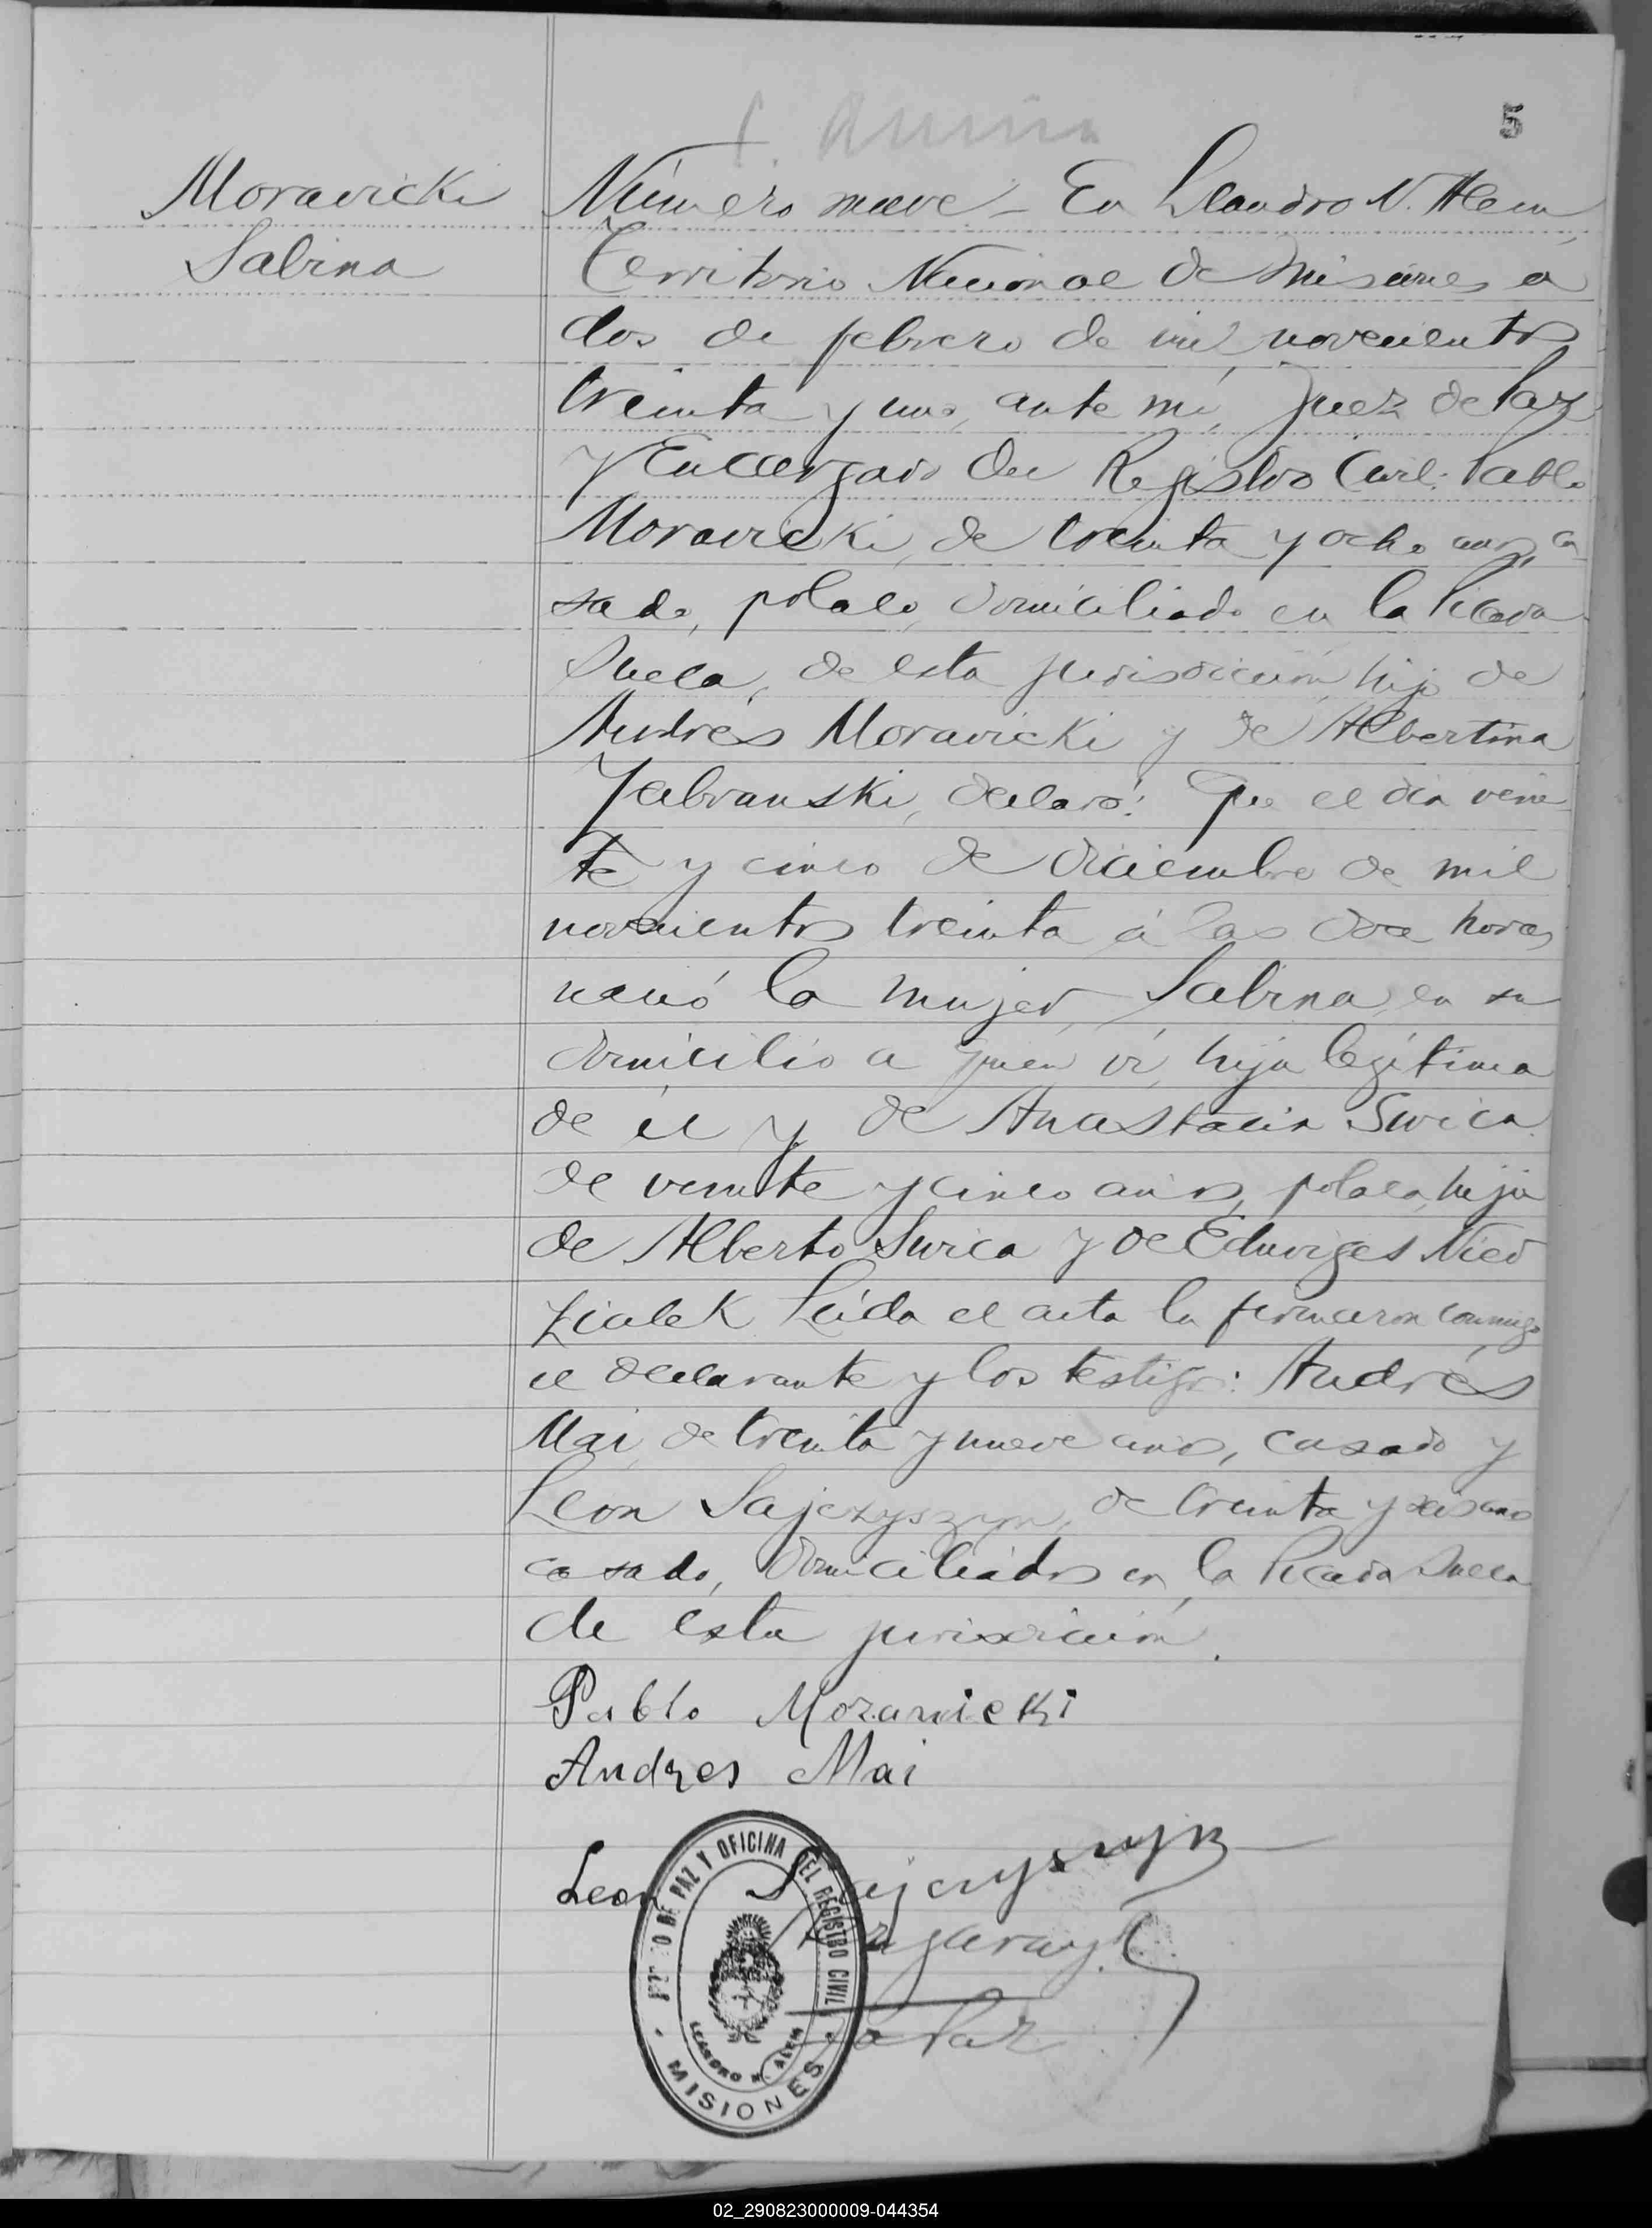 5
Moravicki
Sabina
Número nueve - En Leandro N. Alem,
Territorio Nacional de Misiones a
dos de febrero de mil novecientos
treinta y uno, ante mí, Juez de Paz
y Encargado del Registro Civil: Pablo
Moravicki, de treinta y ocho años, ca-
sado, polaco, domiciliado en la Picada
Sueca, de esta jurisdicción, hijo de
Andrés Moravicki y de Albertina
Yabranski, declaró: Que el día vein-
te y cinco de diciembre de mil
novecientos treinta á las doce horas
nació la mujer, Sabina, en su
domicilio a quien ví, hija legítima
de él y de Anastacia Swica
de veinte y cinco años, polaca, hija
de Alberto Swica y de Eduviges Nied
zialek Leída el acta la firmaron conmigo
el declarante y los testigos: Andrés
Mai, de treinta y nueve años, casado y
León Sajczyszyn, de treinta y seis años
casado, domiciliados en la Picada Sueca
de ésta jurisdicción.
Pablo Morawicki
Andres Mai
Leon Sajczyszyn
JUZGADO DE PAZ Y OFICINA DEL REGISTRO CIVIL
LEANDRO N. ALEM
MISIONES
02_290823000009-044354